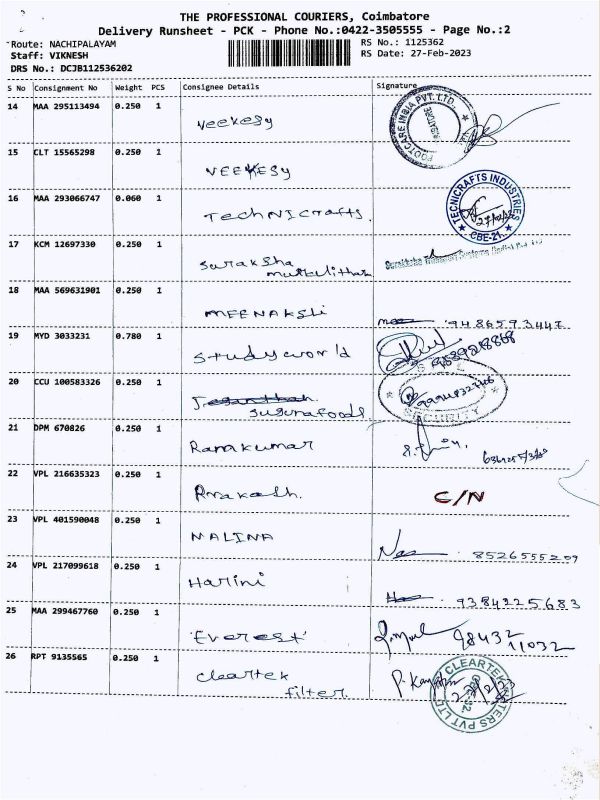 THE PROFESSIONAL COURIERS, Coimbatore
Delivery Runsheet - PCK - Phone No.:0422-3505555 - Page No.:2
Route: NACHIPALAYAM
RS No.: 1125362
Staff: VIKNESH
RS Date: 27-Feb-2023
DRS No.: DCJB112536202
S No Consignment No Weight PCS Consignee Details Signature
14 MAA 295113494 0.250 1 Veekesy
FOOTCARE INDIA PVT. LTD.
15 CLT 15565298 0.250 1 VEEKESy
16 MAA 293066747 0.060 1 TechNIcrafts.
TECNICRAFTS INDUSTRIES
27/02/23
CBE-21.
17 KCM 12697330 0.250 1 Suraksha
18 MAA 569631901 0.250 1 MEENAKSLi
9486593447
19 MYD 3033231 0.780 1 Studyworld
20 CCU 100583326 0.250 1
Sugunafoods
SECURITY
21 DPM 670826 0.250 1 Ramakumar
22 VPL 216635323 0.250 1 Prakash. C/N
23 VPL 401590048 0.250 1 NALINA
8526555209
24 VPL 217099618 0.250 1 Harini
9384325683
25 MAA 299467760 0.250 1 'Everest'
98432
11032
26 RPT 9135565 0.250 1 Cleartek
filter